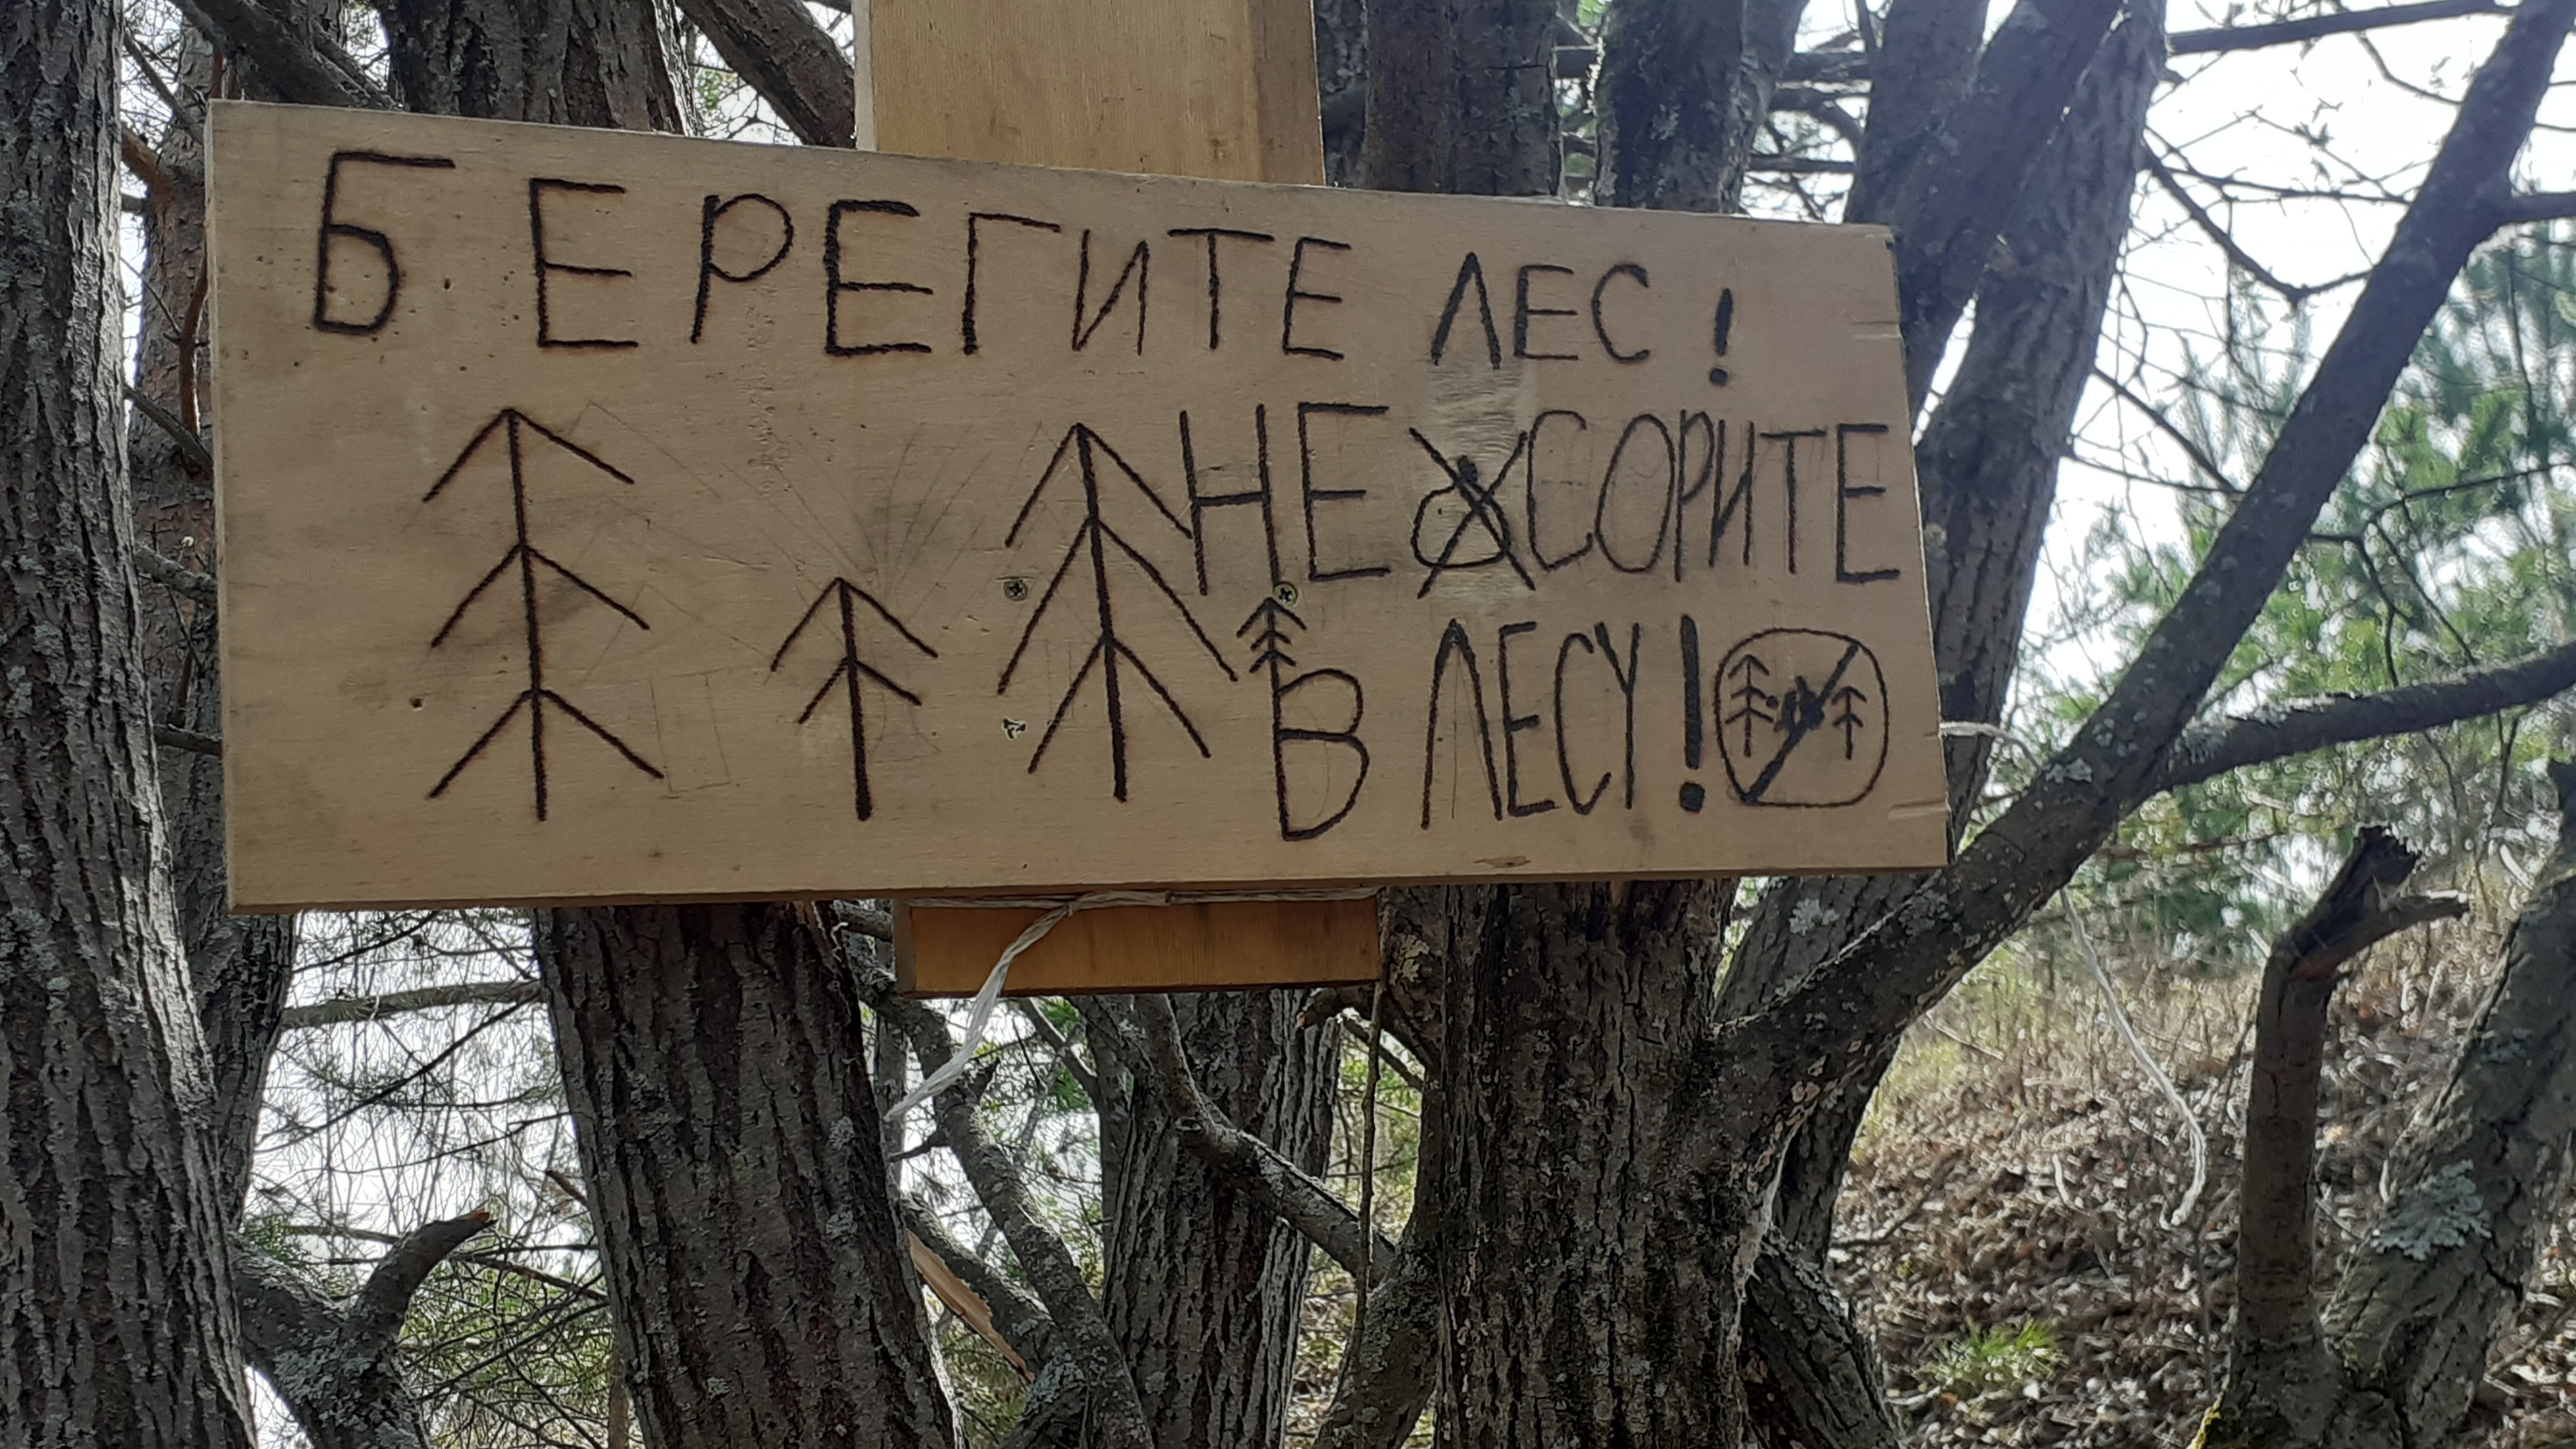 БЕРЕГИТЕ ЛЕС!
НЕ СОРИТЕ
В ЛЕСУ!